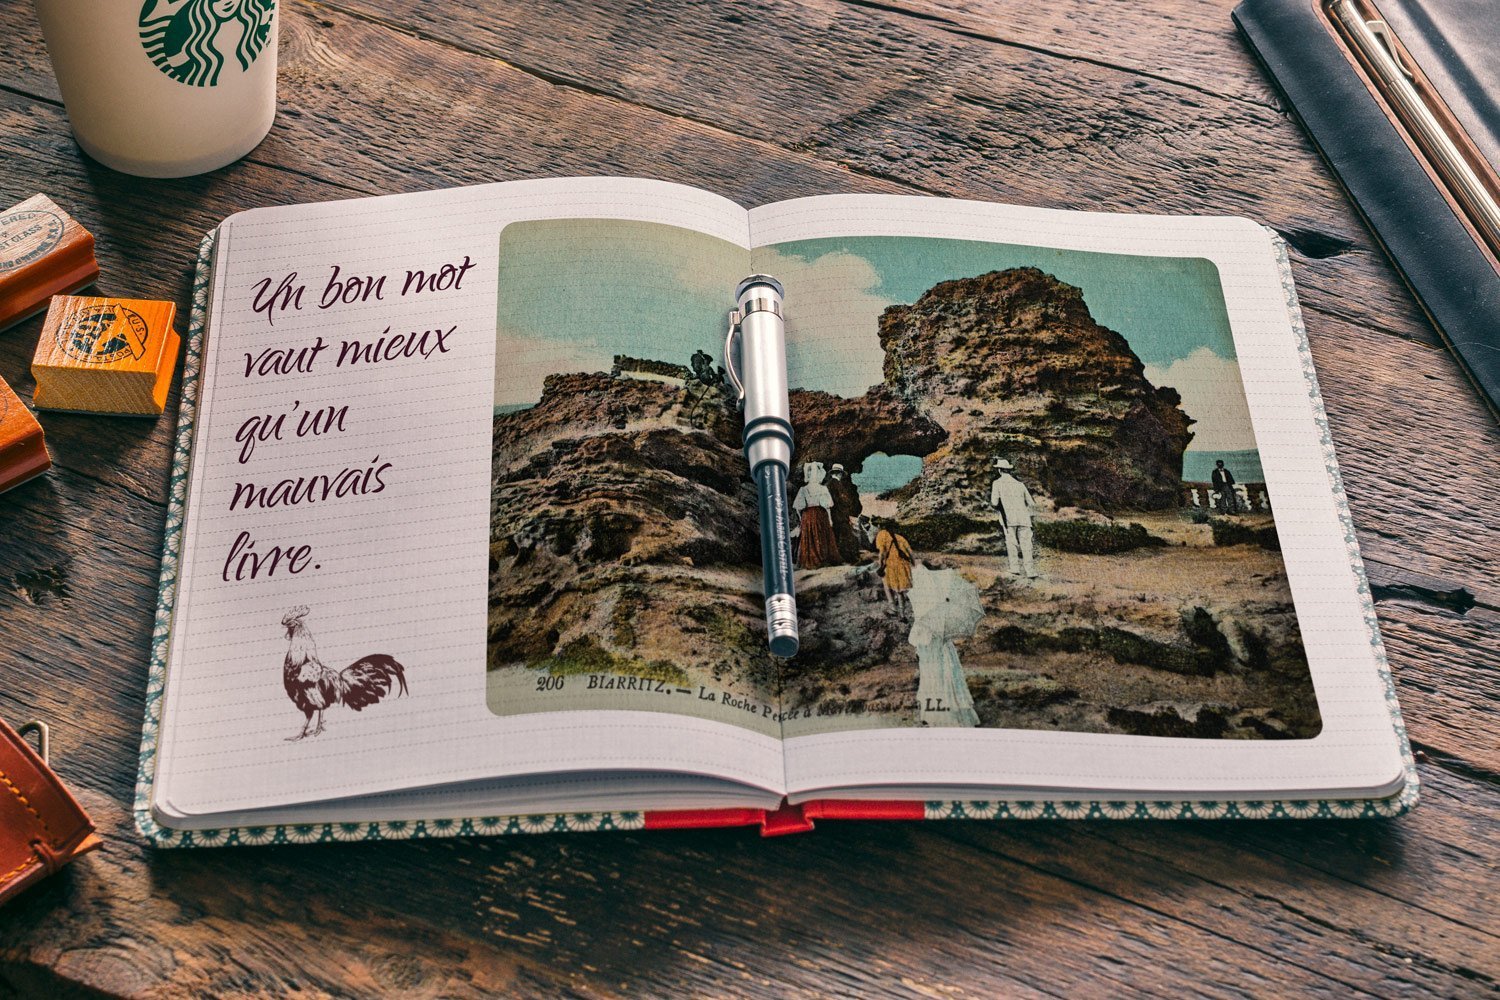 Un bon mot
vaut mieux
qu'un
mauvais
livre.
206 BIARRITZ. — La Roche Percée à Marée basse. — LL.
U.S.